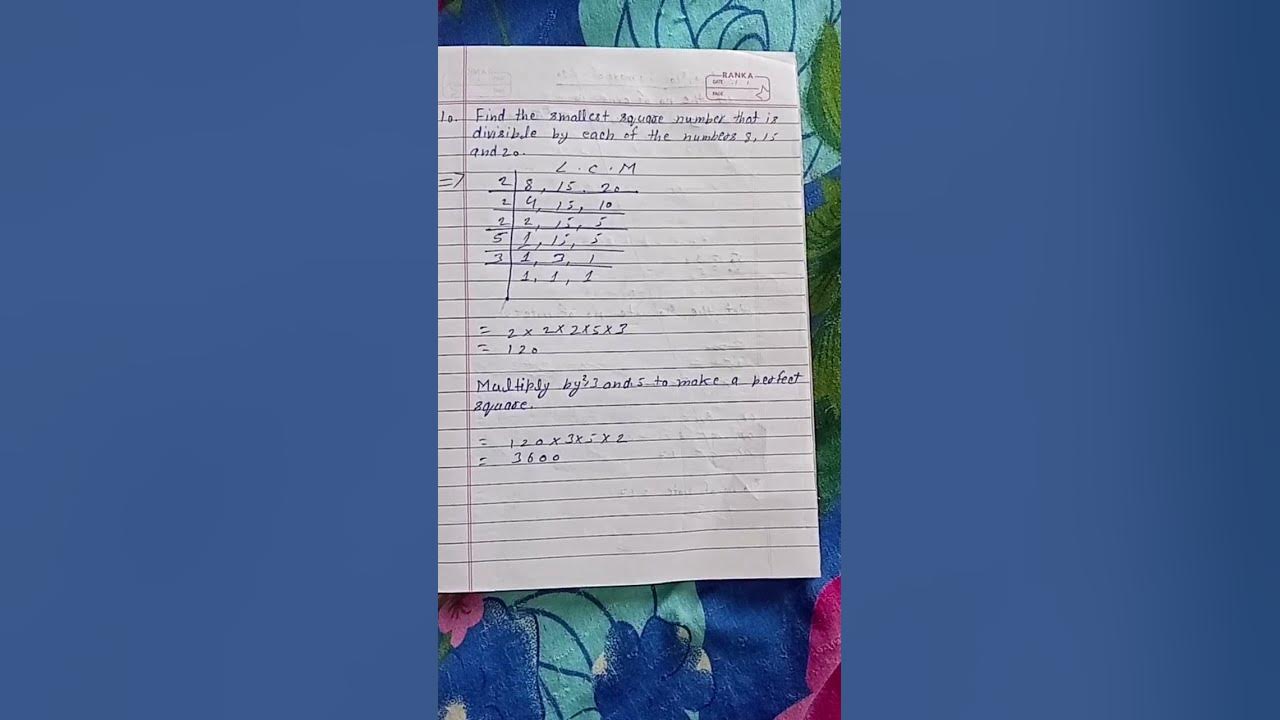 RANKA
DATE / /
PAGE
10. Find the smallest square number that is
divisible by each of the numbers 8, 15
and 20.
L.C.M
=> 2 8, 15, 20
2 4, 15, 10
2 2, 15, 5
5 1, 15, 5
3 1, 3, 1
1, 1, 1
= 2 × 2 × 2 × 5 × 3
= 120
Multiply by 2, 3 and 5 to make a perfect
square.
= 120 × 3 × 5 × 2
= 3600